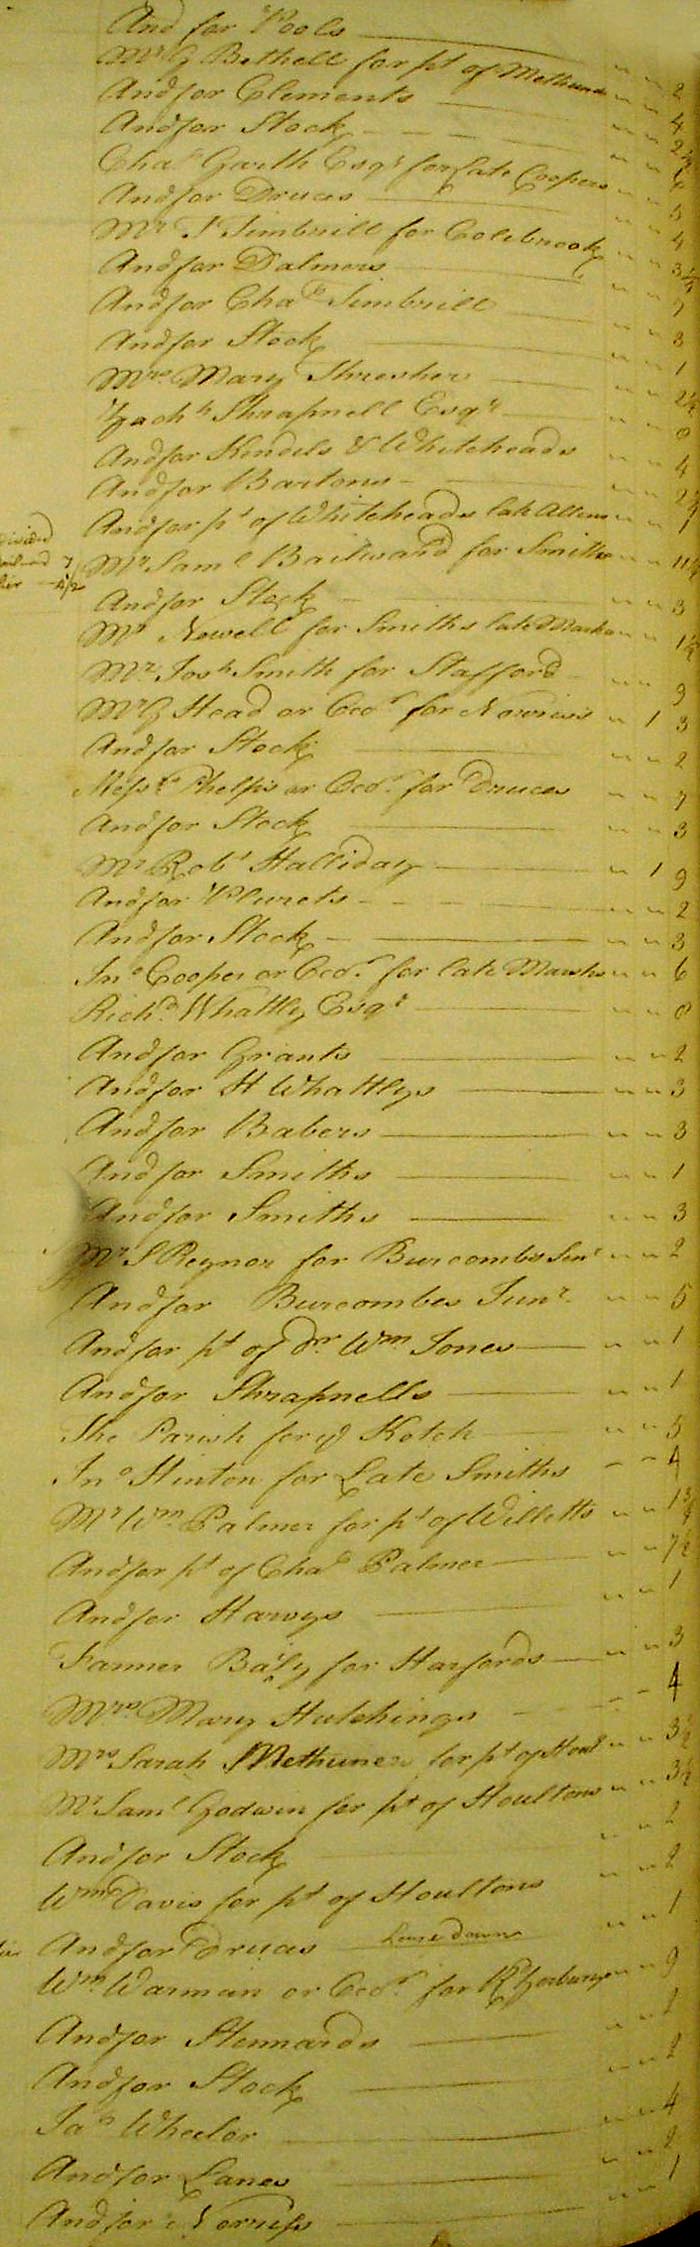 And for Pools " " 2
Mr G Bethell for pt of Methuen " " 4
And for Clements " " 2½
And for Stock " " 6
Chas Garth Esqr for late Coopers " " 5
And for Druces " " 4
Mr J Timbrill for Colebrook " " 3¼
And for Palmers " " 
And for Chas Timbrill " " 3
And for Stock " " 1
Mrs Mary Thresher " " 2½
Zachh Shrapnell Esqr " " 8
And for Kendels & Whiteheads " " 4
And for Bartons " " 2¼
And for pt of Whiteheads late Allens " " 1
divided
7
4½
Mr Saml Bailward for Smiths " " 11½
And for Stock " " 3
Mr Newell for Smiths late " " 1½
Mr Josh Smith for Stafford " " 9
Mr G Head or Occr for Norriss " 1 3
And for Stock " " 2
Messrs Phelps or Occr for Druces " " 7
And for Stock " " 3
Mr Robt Halliday " 1 9
And for Plurets " " 2
And for Stock " " 3
Jno Cooper or Occr for late Marshs " " 6
Richd Whattly Esqr " " 8
And for Grants " " 2
And for H Whattlys " " 3
And for Babers " " 3
And for Smiths " " 1
And for Smiths " " 3
Mr S Reynor for Burcombs Senr " " 2
And for Burcombes Junr " " 5
And for pt of Do Wm Jones " " 1
And for Shrapnells " " 1
The Parish for ye Hotch " " 5
Jno Hinton for Late Smiths " " 4
Mr Wm Palmer for pt of Willetts " " 1¾
And for pt of Chas Palmer " " 7½
And for Harvys " " 1
Farmer Baily for Harfords " " 3
Mrs Mary Hutchings " " 4
Mrs Sarah Methuen for pt of Houl " " 3½
Mr Saml Godwin for pt of Houltons " " 3½
And for Stock " " 2
Wm Davis for pt of Houltons " " 2
And for Druces Lime Down " " 1
Wm Warman or Occr for " " 9
And for Stennards " " 1
And for Stock " " 2
Jas Wheeler " " 4
And for Lanes " " 2
And for Norriss " " 1